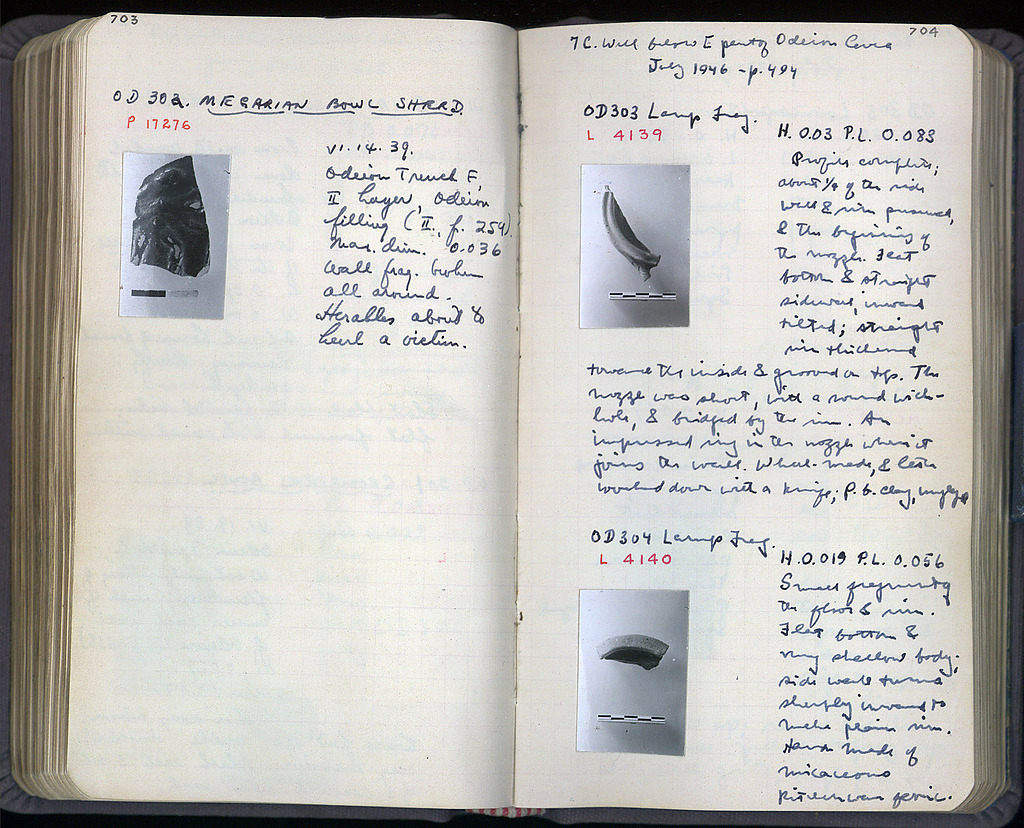 703
OD 302. MEGARIAN BOWL SHERD
P 17276
VI.14.39.
Odeion Trench F,
II Layer, Odeion
filling (II, p. 259).
Max. dim. 0.036
Wall frag. broken
all around.
Herakles about to
hurl a victim.
704
7 C. Well below E part of Odeion Cavea
July 1946 - p. 494
OD303 Lamp Frag.
L 4139
H. 0.03 P.L. 0.083
Profile complete;
about 1/4 of the side
wall & rim preserved,
& the beginning of
the nozzle. Flat
bottom & straight
sidewall, inward
tilted; straight
rim thickened
towards the inside & grooved on top. The
nozzle was short, with a round wick-
hole, & bridged by the rim. An
impressed ring in the nozzle where it
joins the wall. Wheel-made, & later
worked down with a knife; P. b. clay, unglazed
OD304 Lamp Frag.
L 4140
H. 0.019 P.L. 0.056
Small fragment of
the floor & rim.
Flat bottom &
very shallow body;
side wall turns
sharply inward to
make plain rim.
Hand made of
micaceous
kitchenware fabric.